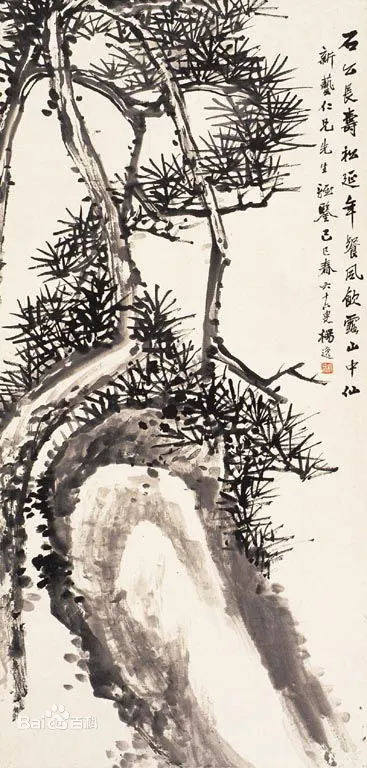 石公長壽松延年餐風飲露山中仙
新藝仁兄先生雅鑒己巳春六十六叟楊逸
Bai百科